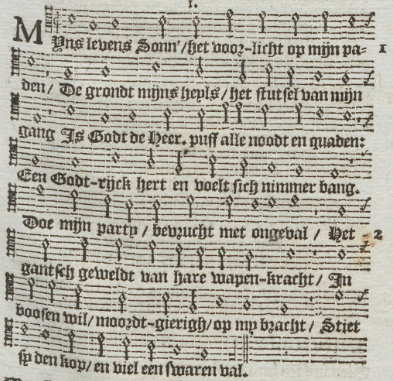 1.
MYns levens Sonn'/het voor-licht op mijn pa- 1
den/ De grondt mijns heyls/ het stutsel van mijn
gang Is Godt de Heer. puff alle noodt en quaden:
Een Godt-rijck hert en voelt sich nimmer bang.
Doe mijn party / bevrucht met ongeval / Het 2
gantsch geweldt van hare wapen-kracht/ In
boosen wil/moordt-gierigh/op my bracht/ Stiet
sy den kop/en viel een swaren val.